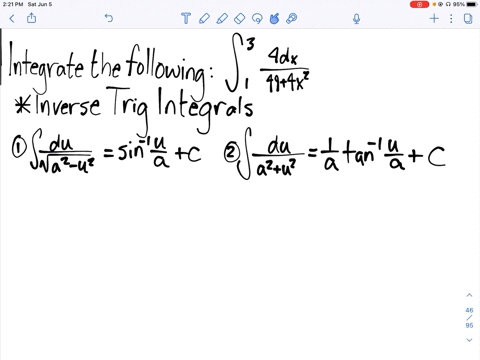 2:21 PM Sat Jun 5
95%
Integrate the following: ∫₁³ 4dx/(49+4x²)
*Inverse Trig Integrals
① ∫ du/√(a²-u²) = sin⁻¹ u/a + C ② ∫ du/(a²+u²) = 1/a tan⁻¹ u/a + C
46
/
95